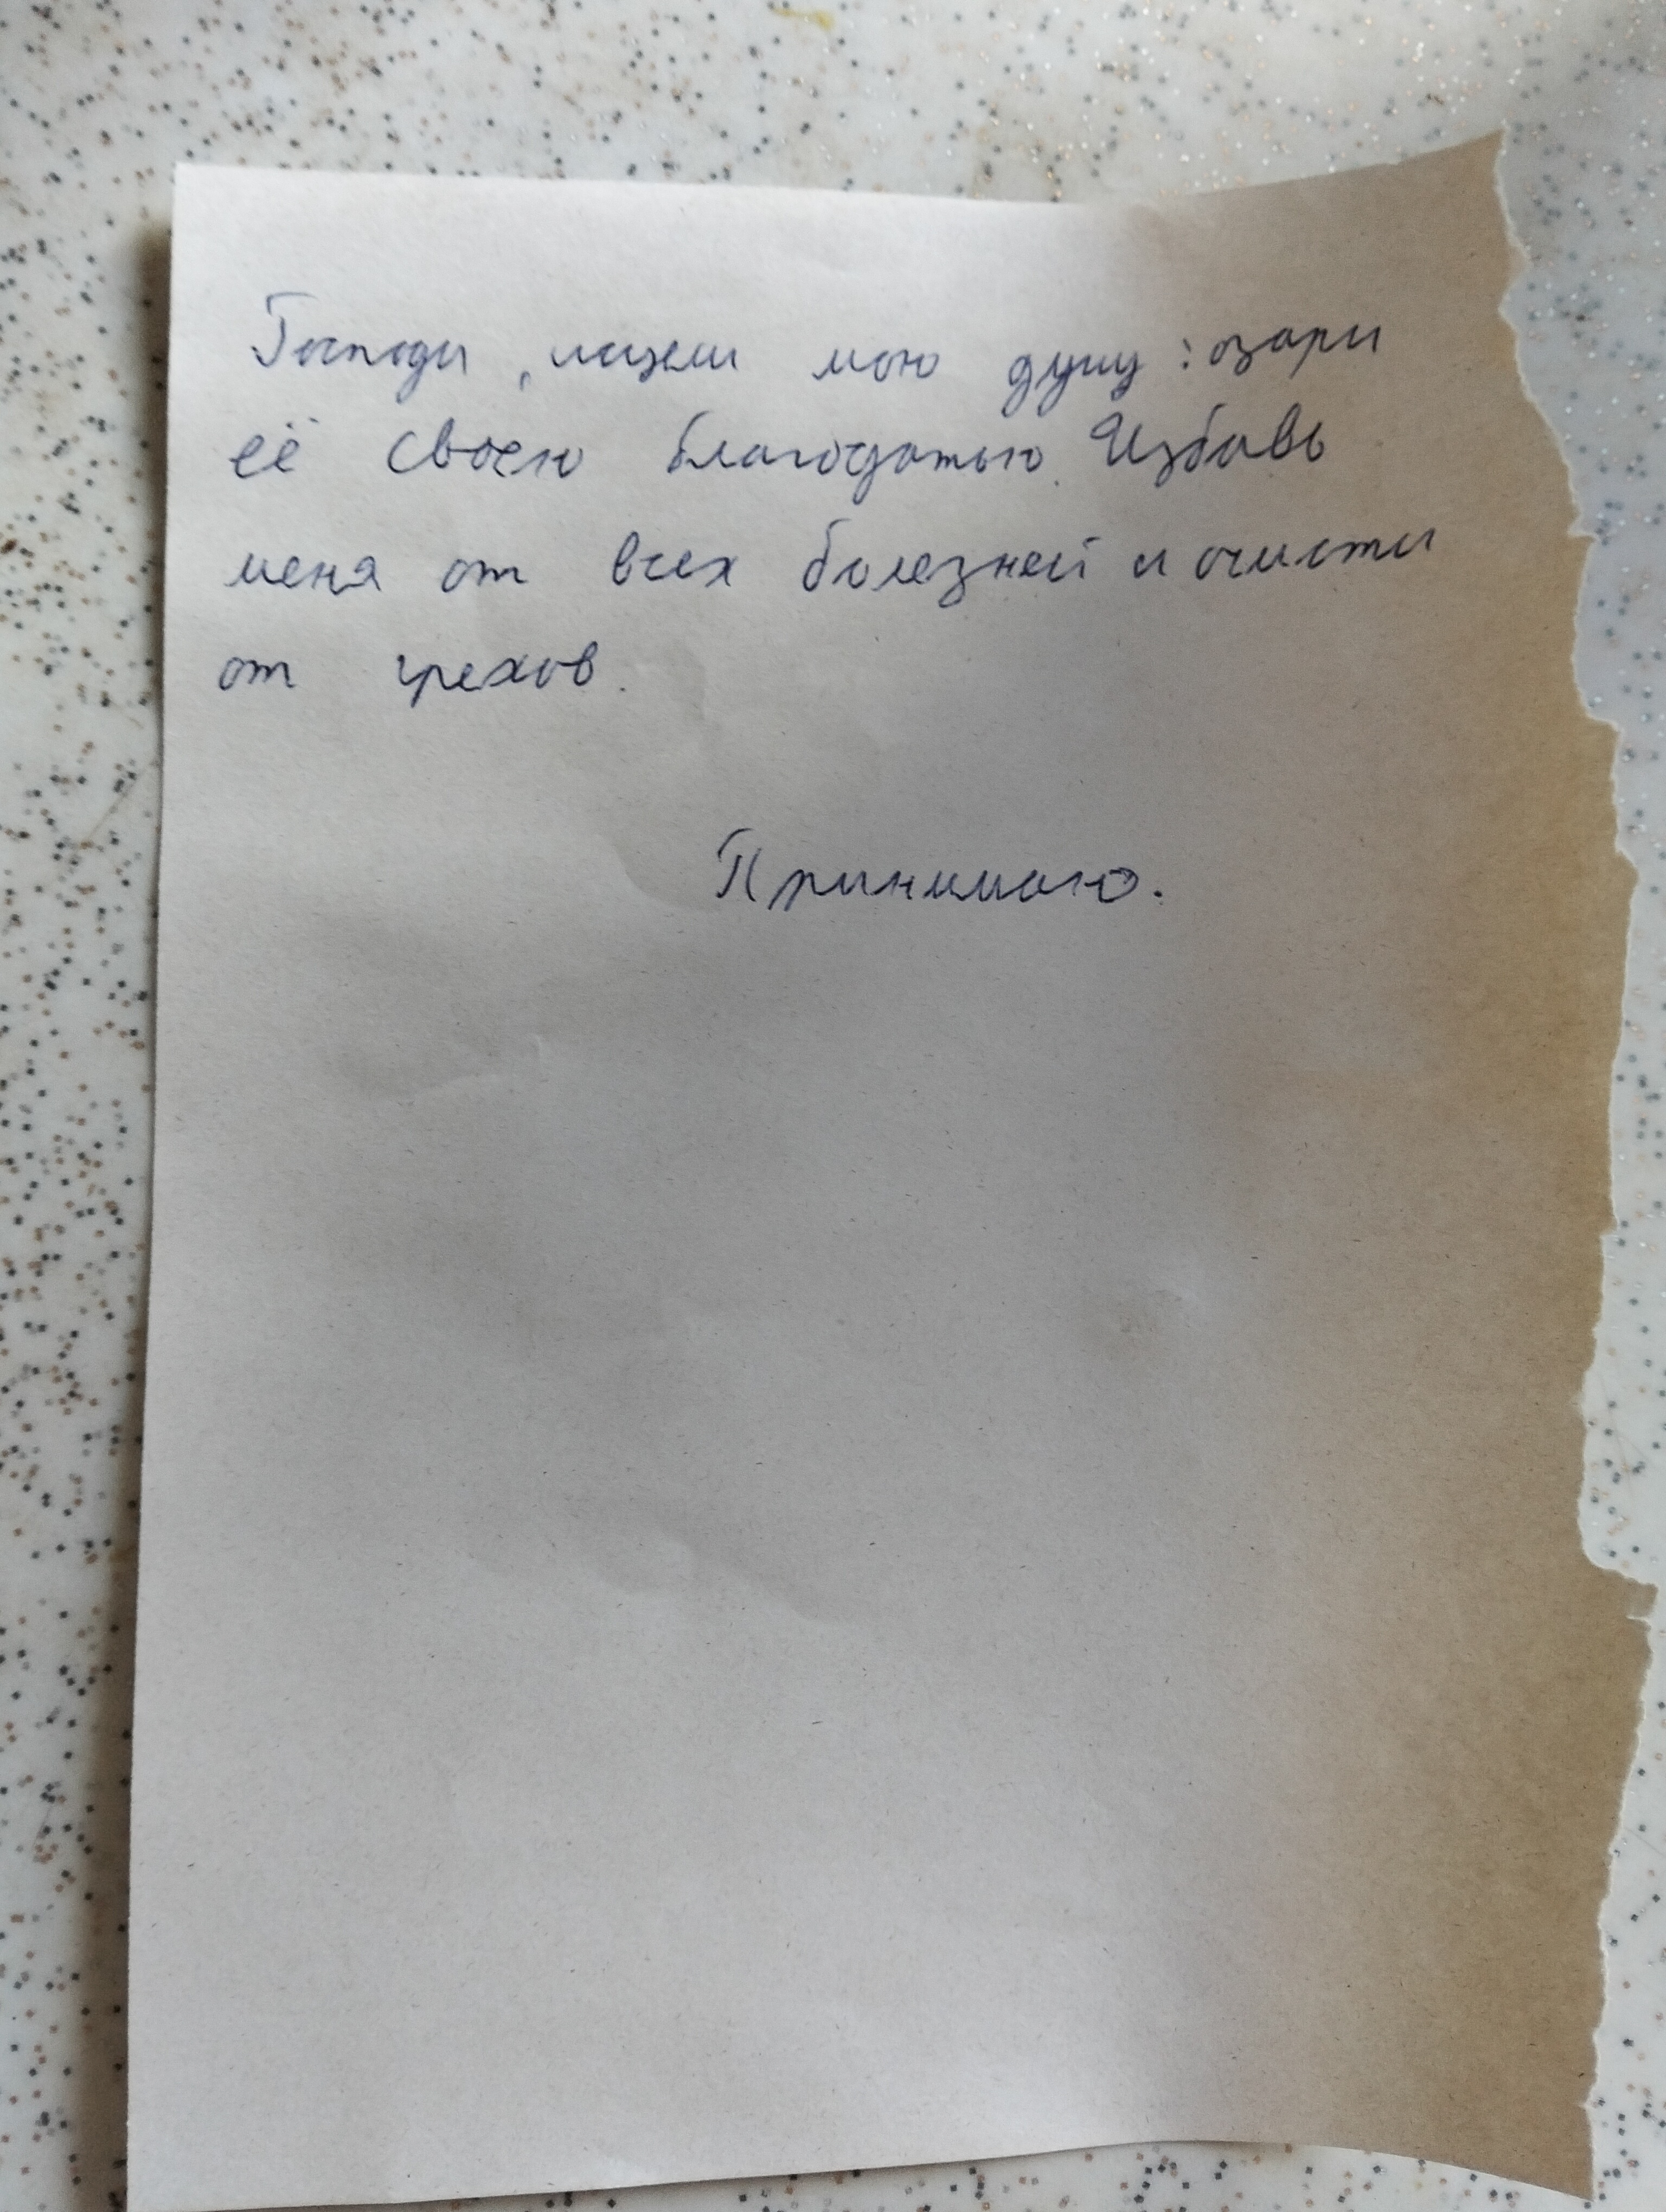 Господи, исцели мою душу: озари
её своею благодатью. Избавь
меня от всех болезней и очисти
от грехов.
Принимаю.